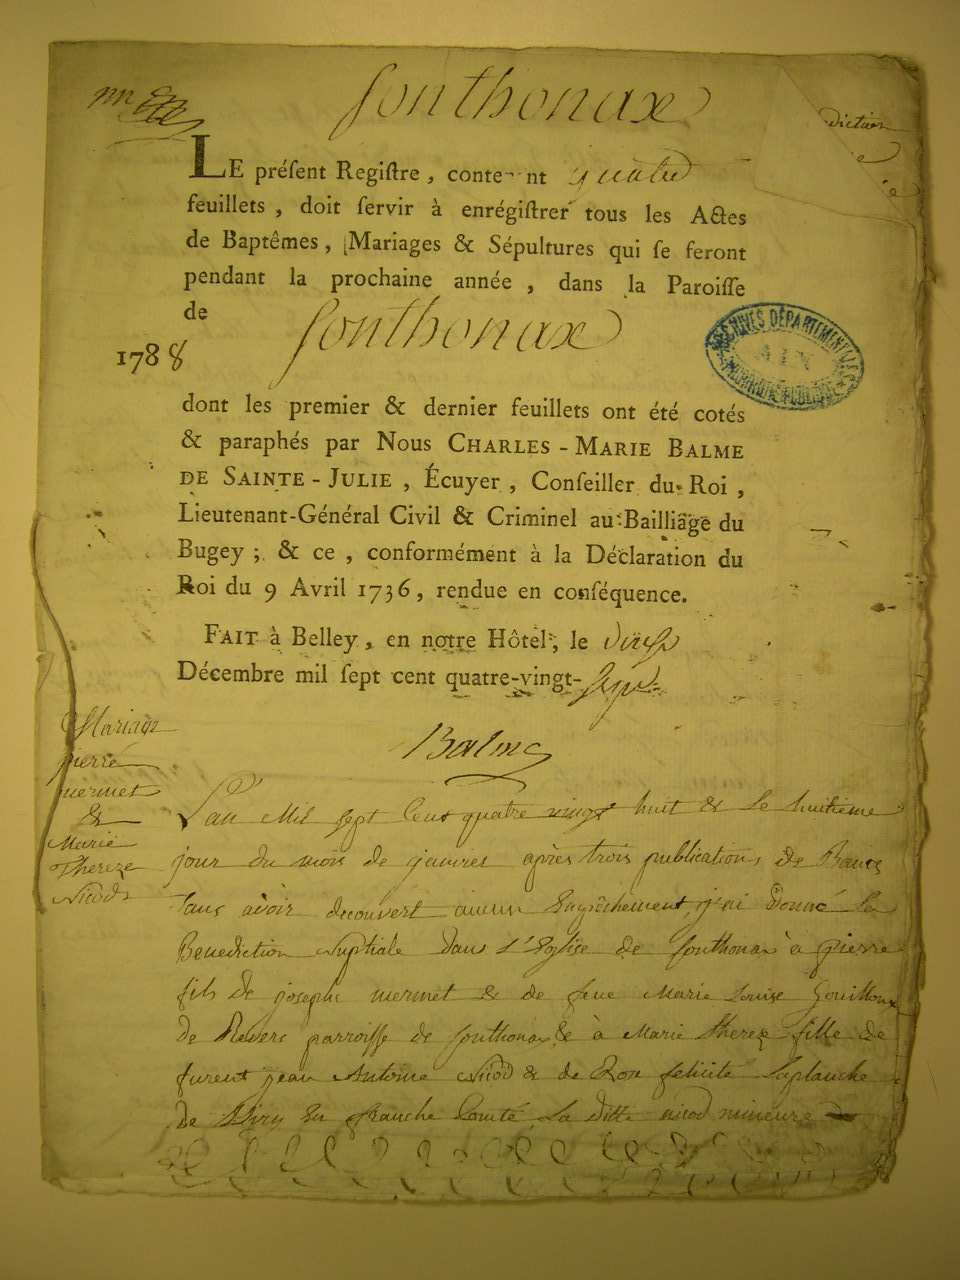 Sonthonax
diction
LE préſent Regiſtre, contenant quatre
feuillets, doit ſervir à enrégiſtrer tous les Actes
de Baptêmes, Mariages & Sépultures qui ſe feront
pendant la prochaine année, dans la Paroiſſe
de Sonthonax
1788
ARCHIVES DÉPARTEMENTALES
AIN
dont les premier & dernier feuillets ont été cotés
& paraphés par Nous CHARLES-MARIE BALME
DE SAINTE-JULIE, Écuyer, Conſeiller du Roi,
Lieutenant-Général Civil & Criminel au Bailliâge du
Bugey; & ce, conformément à la Déclaration du
Roi du 9 Avril 1736, rendue en conſéquence.
FAIT à Belley, en notre Hôtel, le vingt
Décembre mil ſept cent quatre-vingt-sept
Balme
Mariage
pierre
mermet
&
Marie
Thereze
Nicod
L'an Mil sept Cens quatre vingt huit & le huitieme
jour du mois de janvier après trois publications de Bancs
sans avoir decouvert aucun Empêchement, j'ai Donné la
Benediction Nuptiale dans l'Eglise de sonthonax à pierre
fils de joseph mermet & de feue Marie Louise Gouilloux
de parroisse de sonthonax & à Marie thereze fille de
furent jean Antoine Nicod & de felicité laplanche
de Viry En franche Comté, la ditte nicod mineure